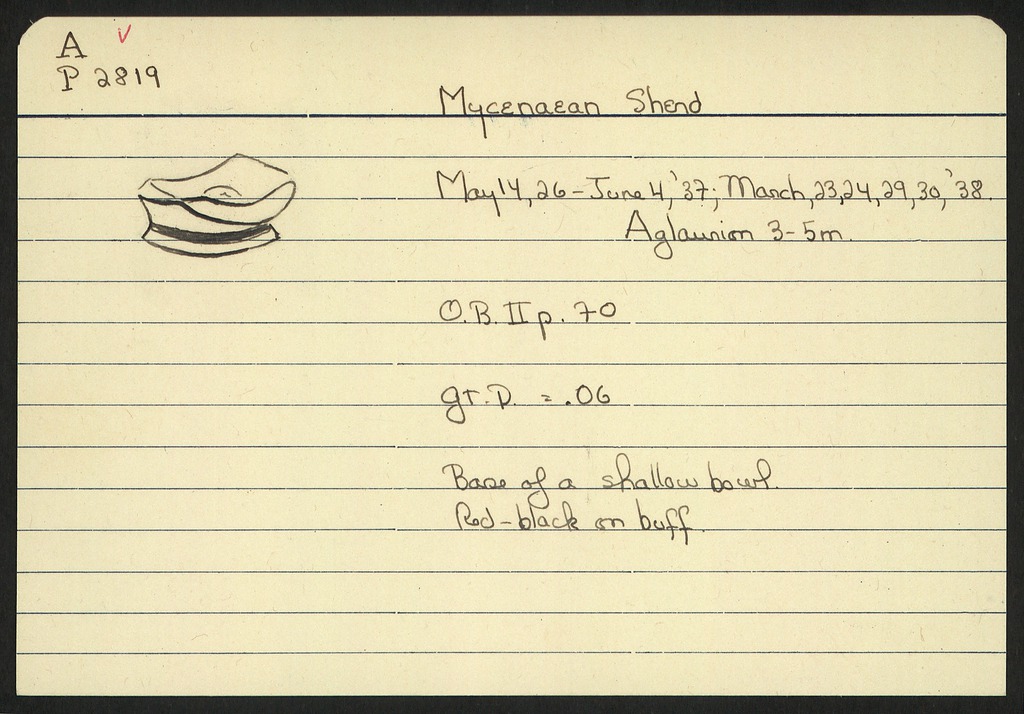 A
P 2819
Mycenaean Sherd
May 14, 26 - June 4, '37; March, 23, 24, 29, 30, '38.
Aglaurion 3-5m.
O.B. II p. 70
gr. D. = .06
Base of a shallow bowl.
Red-black on buff.